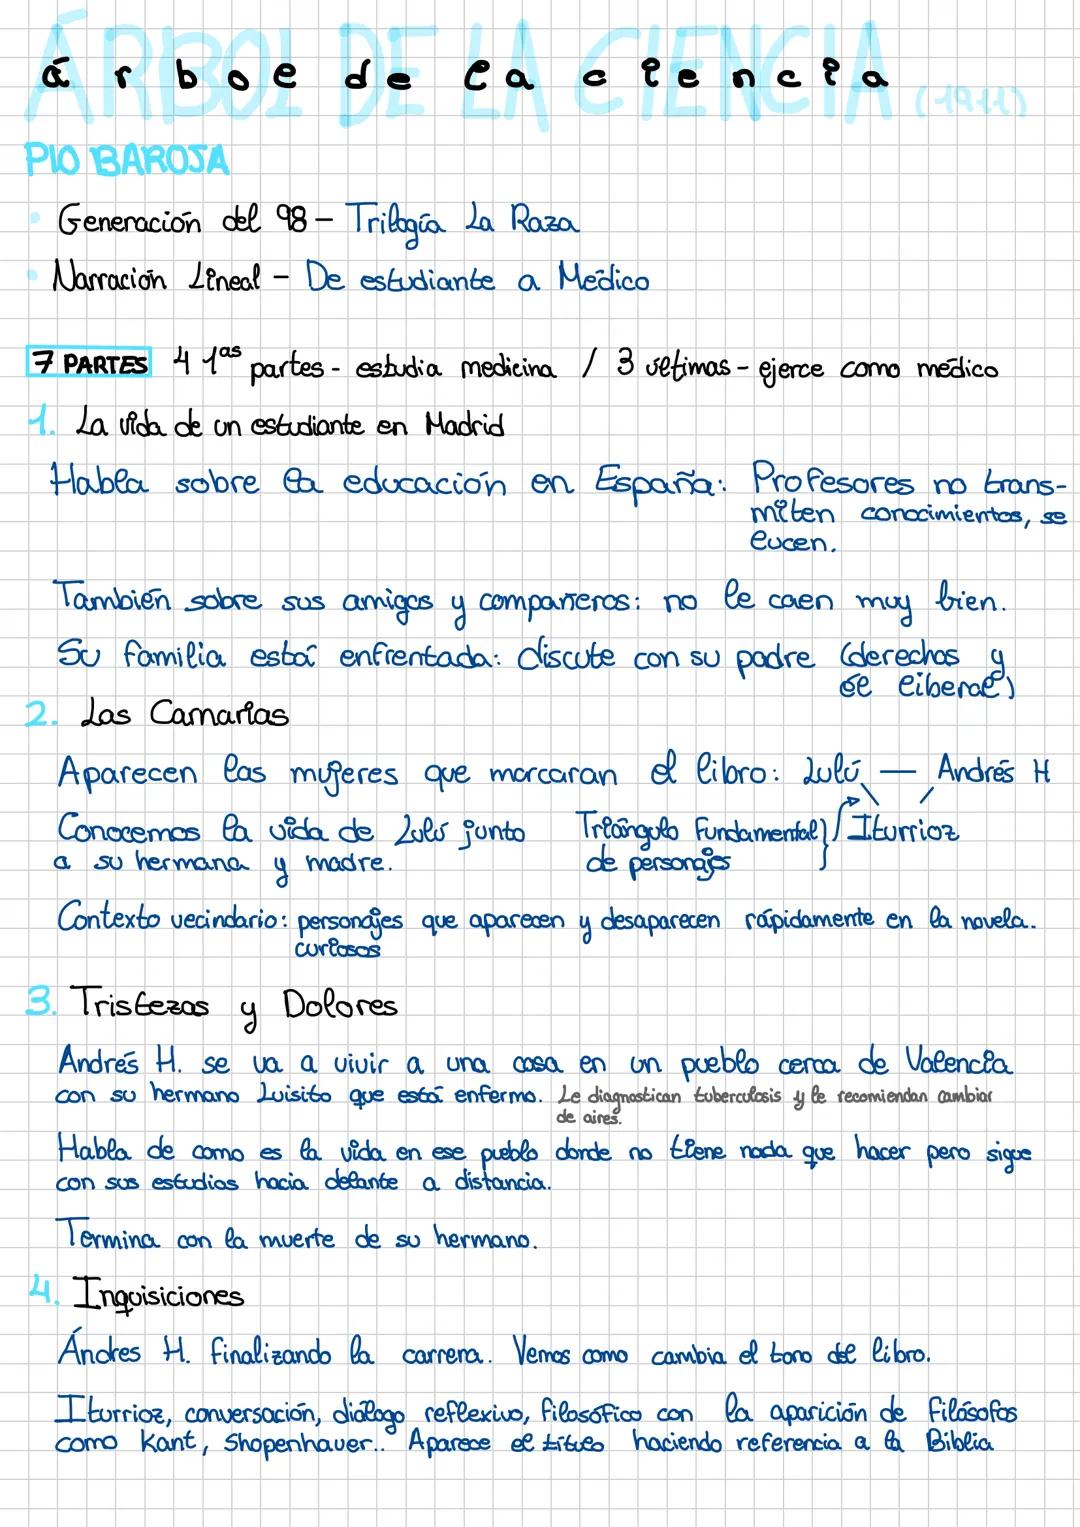 ÁRBOL DE LA CIENCIA (1911)
árbol de la ciencia
PIO BAROJA
Generación del 98 - Trilogía La Raza
Narración Lineal - De estudiante a Médico
7 PARTES 4 1as partes - estudia medicina / 3 últimas - ejerce como médico
1. La vida de un estudiante en Madrid
Habla sobre la educación en España: Profesores no trans-
miten conocimientos, se
lucen.
También sobre sus amigos y compañeros: no le caen muy bien.
Su familia está enfrentada: discute con su padre (derechas y
él liberal)
2. Las Carnarias
Aparecen las mujeres que marcaran el libro: Lulú — Andrés H
Conocemos la vida de Lulú junto
a su hermana y madre.
Triángulo Fundamental
de personajes
Iturrioz
Contexto vecindario: personajes que aparecen y desaparecen rápidamente en la novela.
curiosos
3. Tristezas y Dolores
Andrés H. se va a vivir a una casa en un pueblo cerca de Valencia
con su hermano Luisito que está enfermo. Le diagnostican tuberculosis y le recomiendan cambiar
de aires.
Habla de como es la vida en ese pueblo donde no tiene nada que hacer pero sigue
con sus estudios hacia delante a distancia.
Termina con la muerte de su hermano.
4. Inquisiciones
Ándres H. finalizando la carrera. Vemos como cambia el tono del libro.
Iturrioz, conversación, diálogo reflexivo, filosófico con la aparición de filósofos
como Kant, Shopenhauer.. Aparece el título haciendo referencia a la Biblia